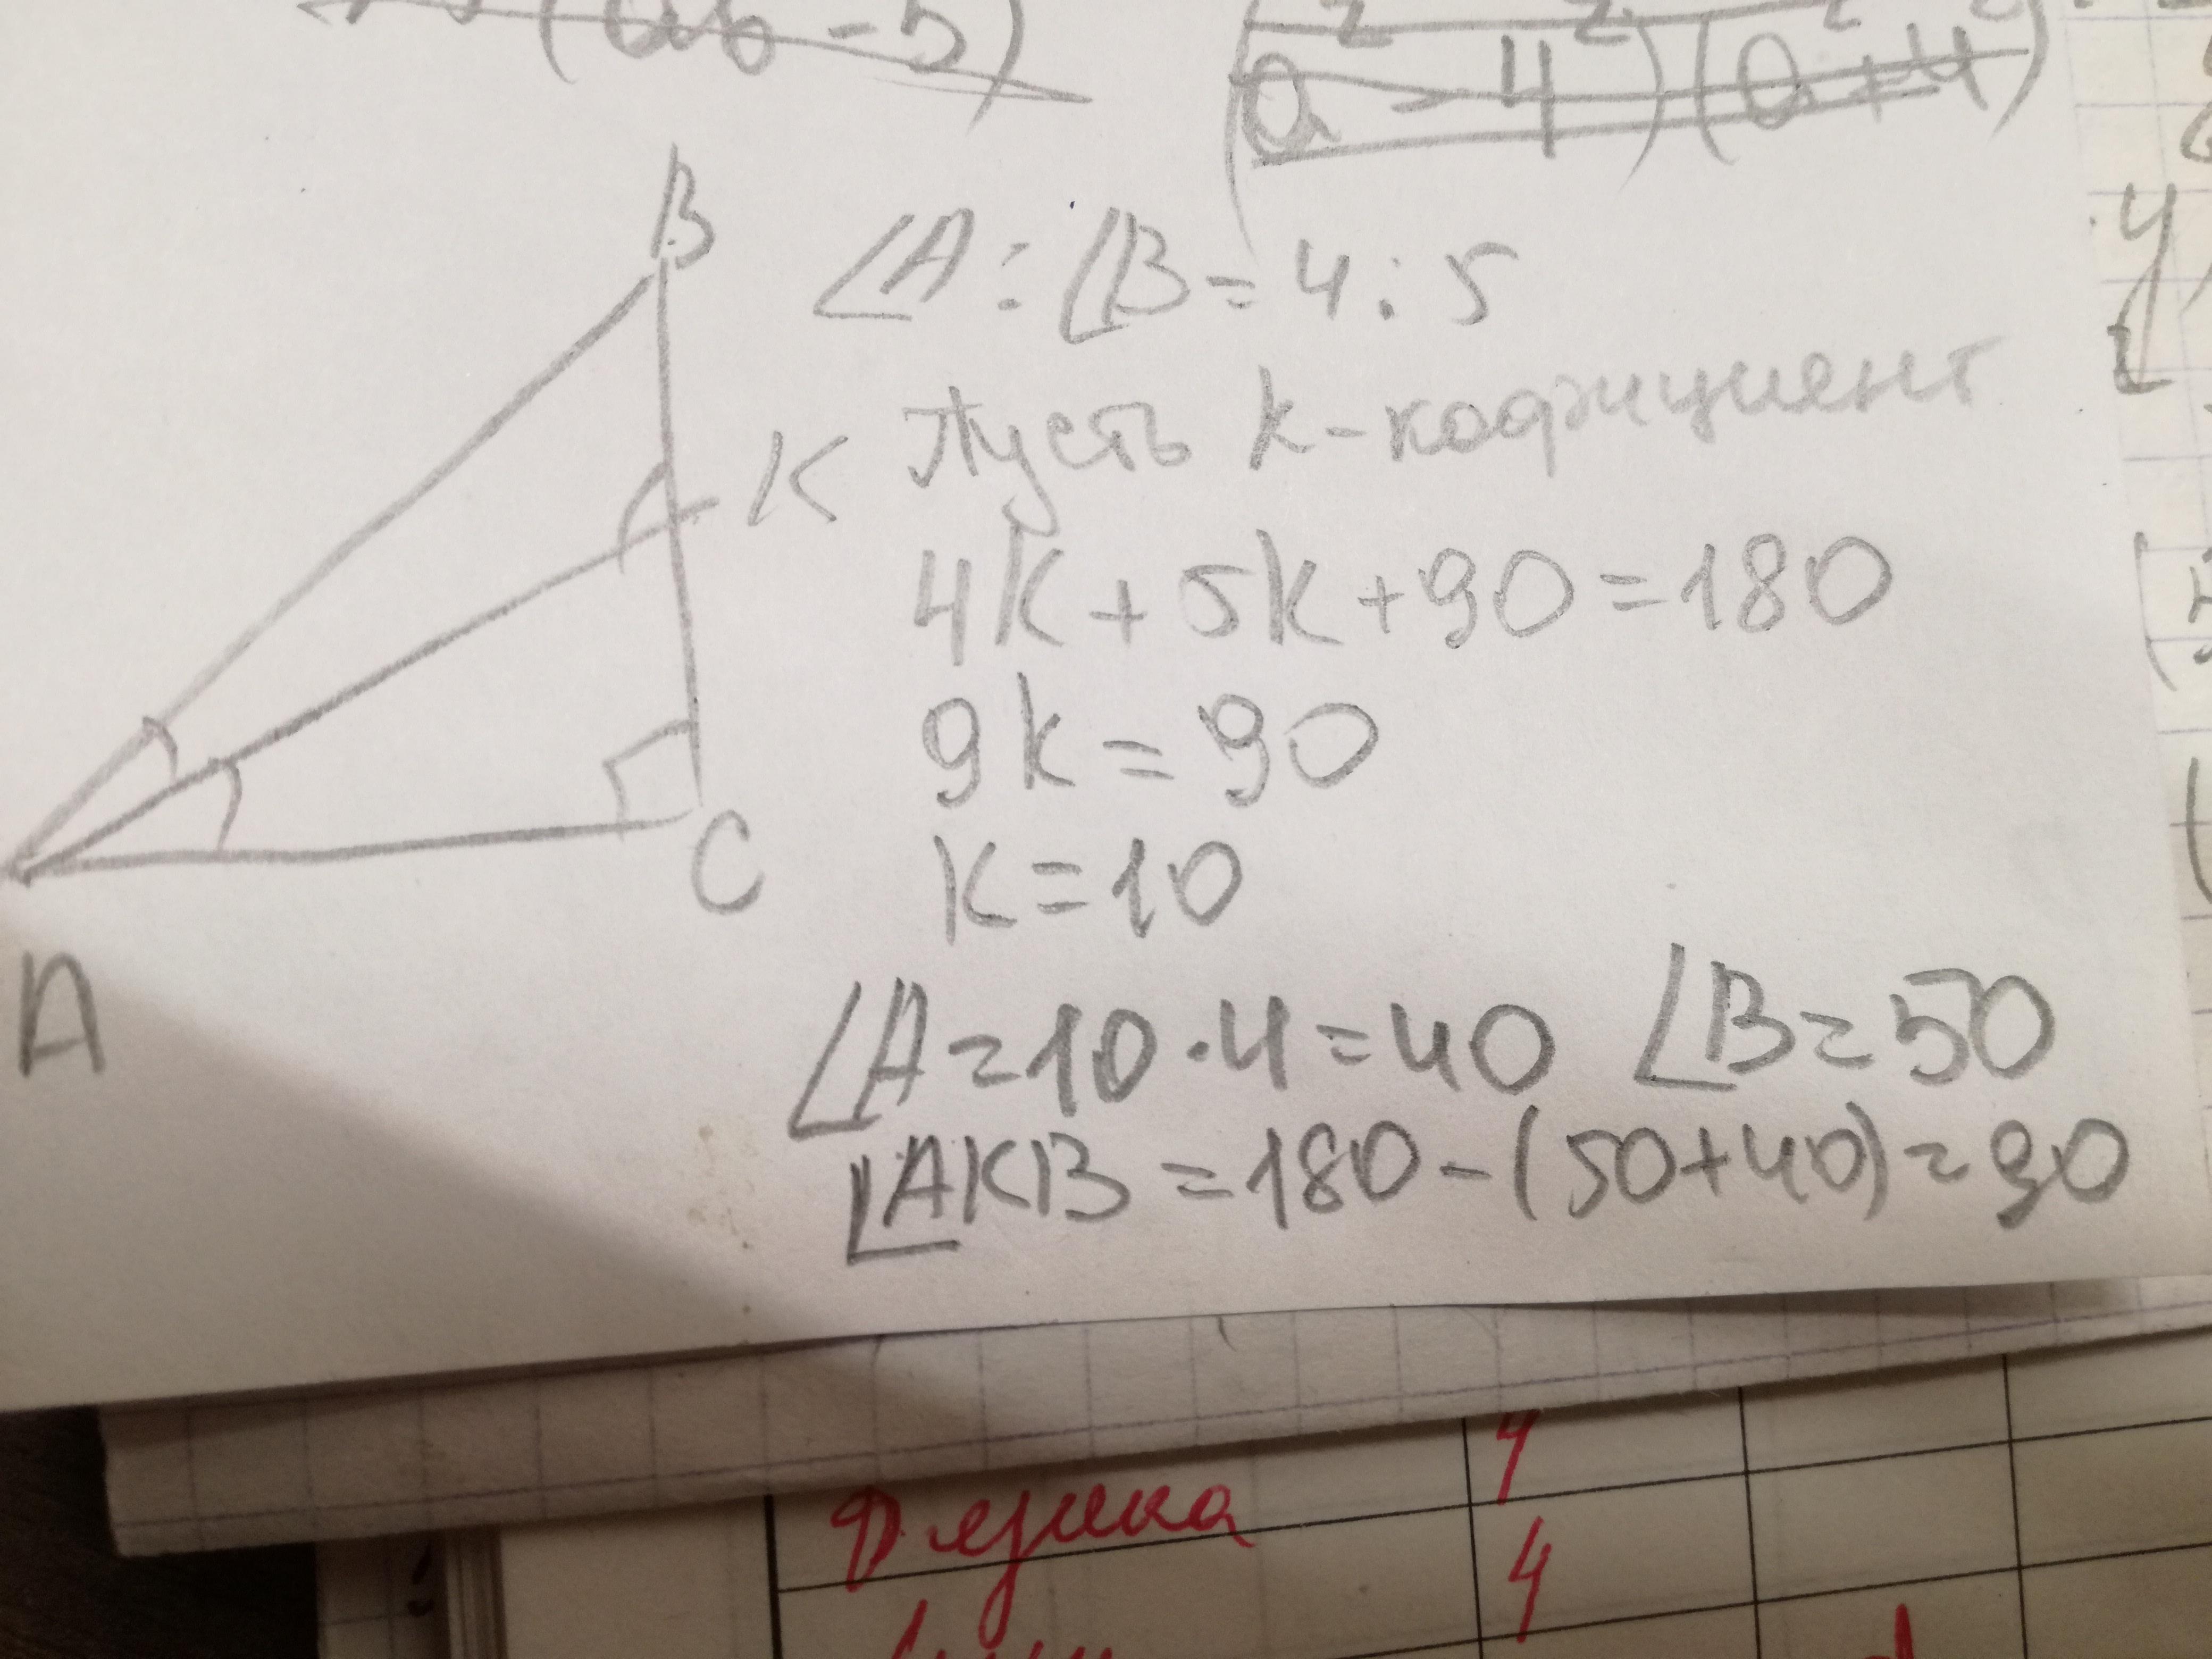 (ab-5)
(a² - 4²)(a² + 4²)
B
∠A : ∠B = 4 : 5
K Пусть k - кофициент
4k + 5k + 90 = 180
9k = 90
C k = 10
A
∠A = 10 · 4 = 40 ∠B = 50
∠AKB = 180 - (50+40) = 90
4
Физика 4